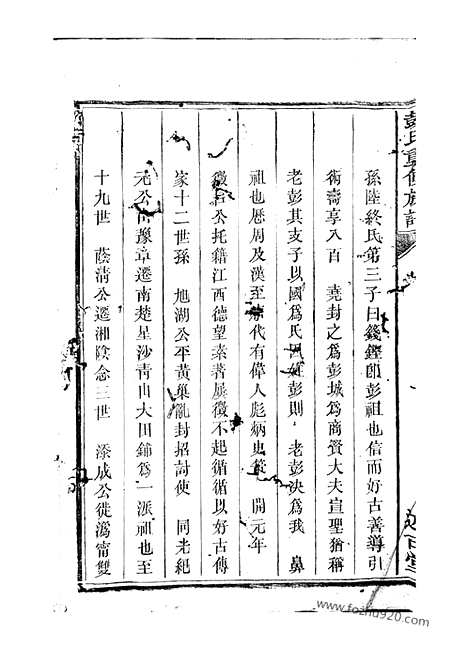 彭氏重修族譜
孫陸終氏第三子曰籛鏗即彭祖也信而好古善導引
術壽享八百 堯封之爲彭城爲商賢大夫宣聖猶稱
老彭其支子以國爲氏因姓彭則 老彭決爲我 鼻
祖也歷周及漢至 代有偉人彪炳史策 開元年
徵君公托籍江西德望素著屢徵不起循循以好古傳
家十二世孫 旭湖公平黃巢亂封招討使 同光紀
元公由豫章遷南楚星沙青山大田鋪爲一派祖也至
十九世 蔭清公遷湘陰念三世 添成公徙潙甯雙
www.fozhu920.com